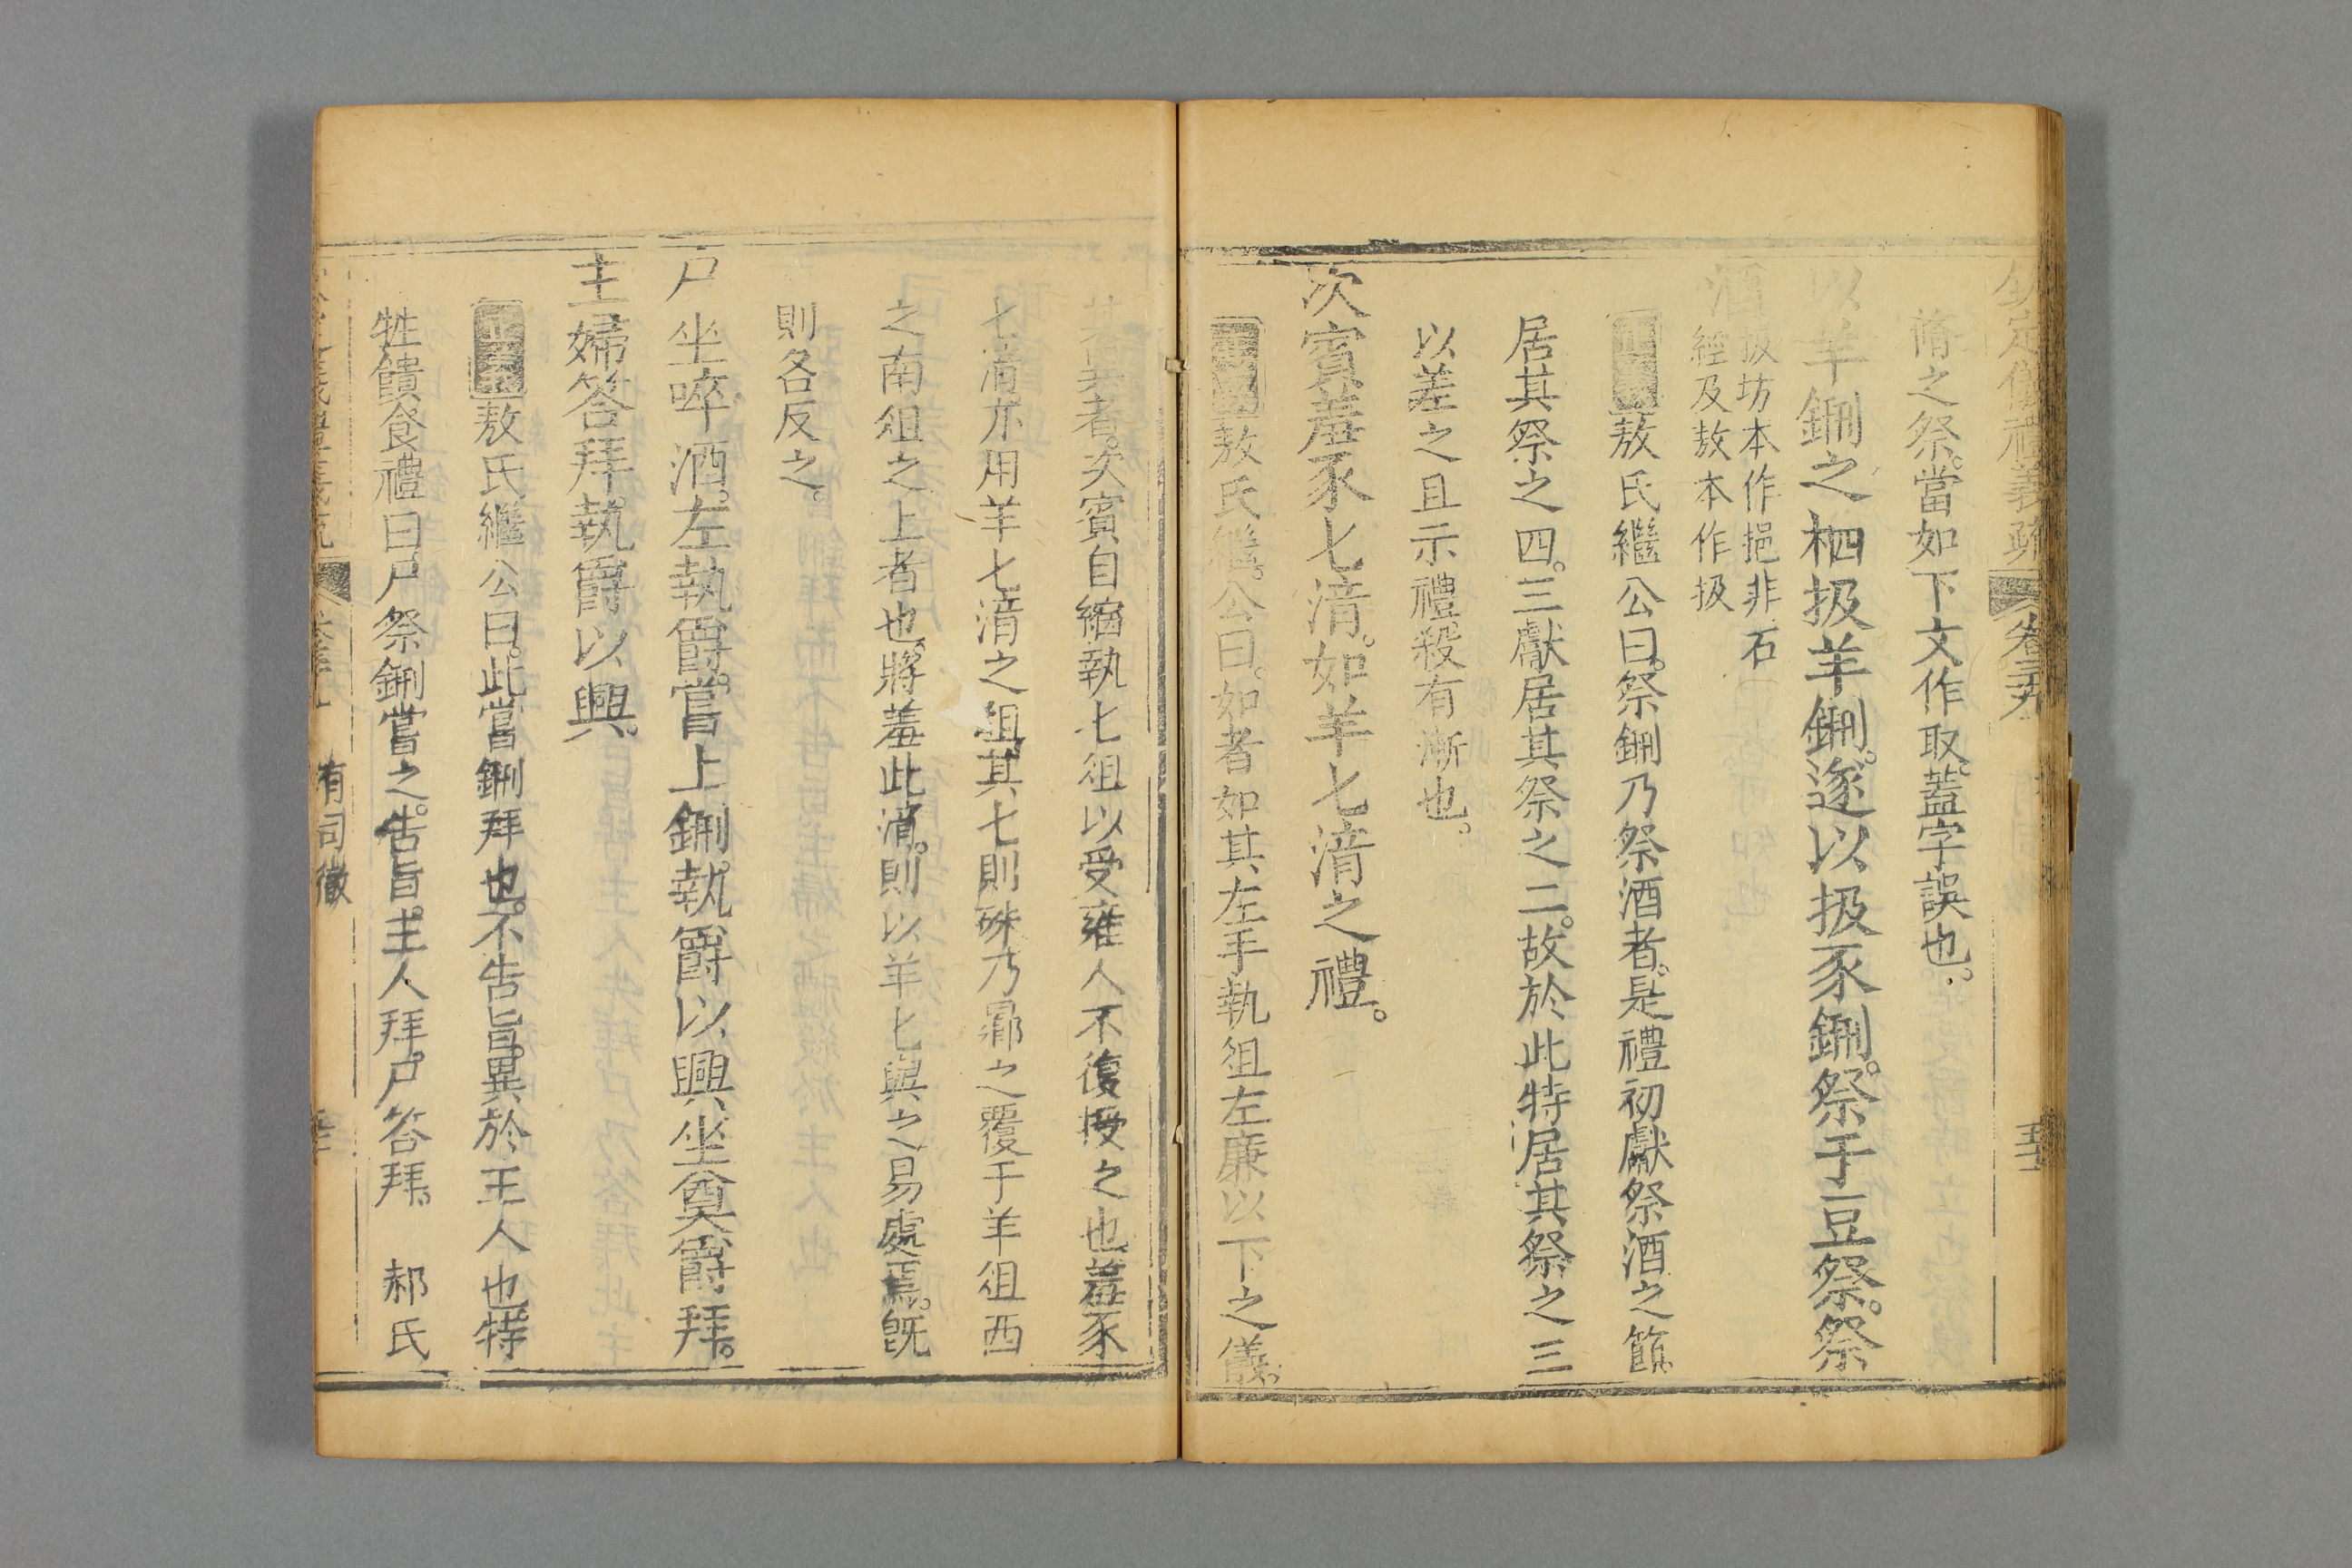 欽定儀禮義疏 卷三十九
脩之祭。當如下文作取。蓋字誤也。
以羊鉶之柶扱羊鉶。遂以扱豕鉶。祭于豆祭。祭
酒扱坊本作挹非石
經及敖本作扱
正義敖氏繼公曰。祭鉶乃祭酒者。是禮初獻祭酒之節。
居其祭之四。三獻居其祭之二。故於此特居其祭之三
以差之且示禮殺有漸也。
次賓羞豕匕湆。如羊匕湆之禮。
正義敖氏繼公曰。如者如其左手執俎左廉以下之儀。
其者。次賓自縮執匕俎以受雍人不復授之也。羞豕
匕湆亦用羊匕湆之俎其匕則殊乃鄉之覆于羊俎西
之南俎之上者也。將羞此湆。則以羊匕與之易處焉。既
則各反之。
尸坐啐酒。左執爵。嘗上鉶。執爵以興。坐奠爵拜。
主婦答拜。執爵以興。
正義敖氏繼公曰。此嘗鉶拜也。不告旨。異於主人也。特
牲饋食禮曰尸祭鉶嘗之。告旨。主人拜。尸答拜。 郝氏
有司徹